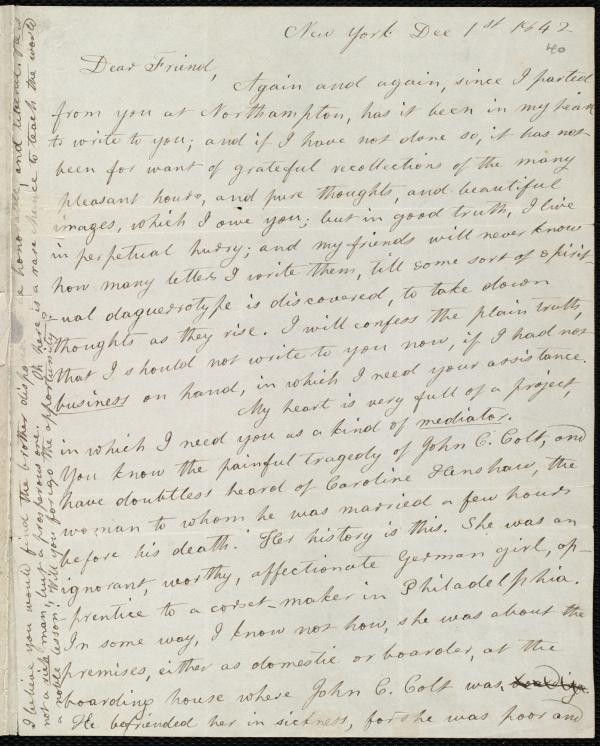 New York Dec 1st 1842
40
Dear Friend,
Again and again, since I parted
from you at Northampton, has it been in my heart
to write to you; and if I have not done so, it has not
been for want of grateful recollections of the many
pleasant hours, and pure thoughts, and beautiful
images, which I owe you; but in good truth, I live
in perpetual hurry; and my friends will never know
how many letters I write them, till some sort of spirit-
-ual daguerrotype is discovered, to take down
thoughts as they rise. I will confess the plain truth,
that I should not write to you now, if I had not
business on hand, in which I need your assistance.
My heart is very full of a project,
in which I need you as a kind of mediator.
You know the painful tragedy of John C. Colt, and
have doubtless heard of Caroline Henshaw, the
woman to whom he was married a few hours
before his death. Her history is this. She was an
ignorant, worthy, affectionate German girl, ap-
prentice to a corset-maker in Philadelphia.
In some way, I know not how, she was about the
premises, either as domestic or boarder, at the
boarding house where John C. Colt was
He befriended her in sickness, for she was poor and
I believe you would find the brother disposed to be honorable and liberal. He is
not a rich man, but a prosperous one. Oh here is a rare chance to teach the world
a noble lesson; Will you forego the opportunity?